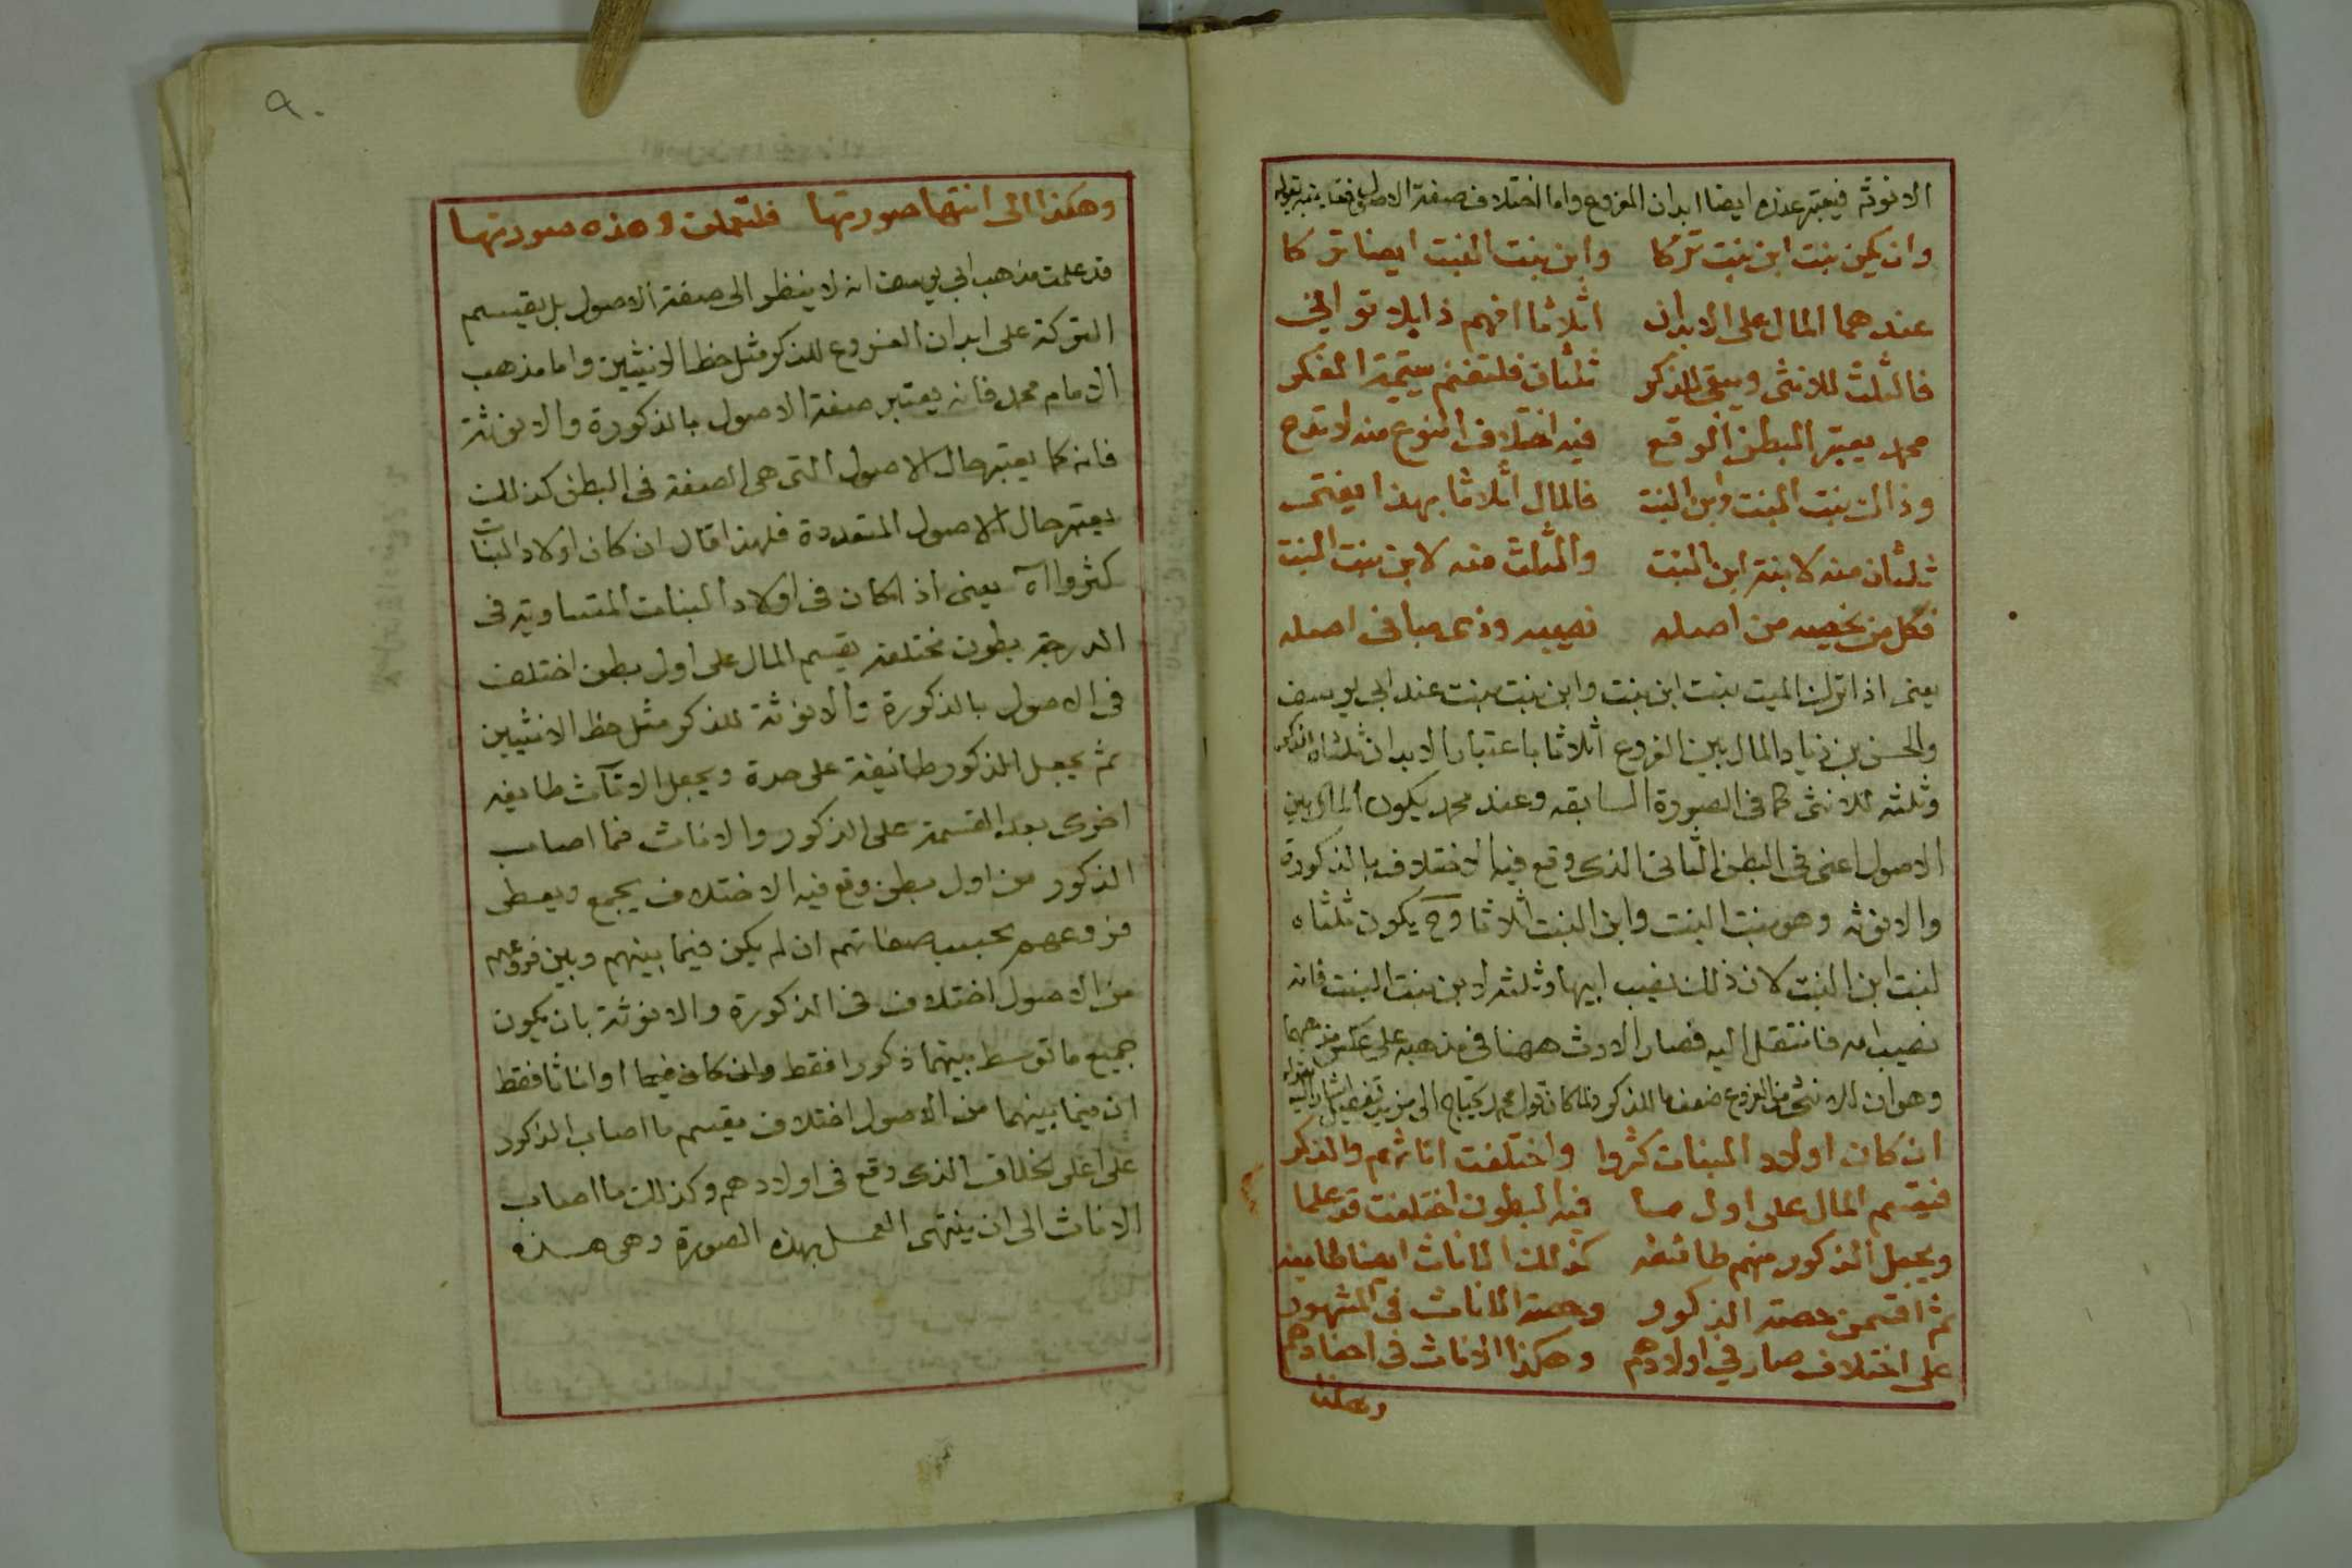 الانوثة فيعتبر عنده ايضا ابدان الفروع واما اختلاف صفة الاصول
وان يكن بنت ابن بنت تركا وابن بنت البنت ايضا تركا
عندهما المال على الابدان اثلاثا افهم ذا بلا تواني
فالثلث للانثى ويبقى للذكر ثلثان فلتغنم
محمد يعتبر البطن الذي وقع فيه اختلاف النوع منه لا تدع
وذاك بنت البنت وابن البنت فالمال اثلاثا بهذا يفتى
ثلثان منه لابنة ابن البنت والثلث منه لابن بنت البنت
فكل من يخصه من اصله نصيبه
يعنى اذا ترك الميت بنت ابن بنت وابن بنت بنت عند ابي يوسف
والحسن بن زياد المال بين الفروع اثلاثا باعتبار الابدان ثلثاه للذكر
وثلثه للانثى كما فى الصورة السابقه وعند محمد يكون المال بين
الاصول اعنى فى البطن الثانى الذى وقع فيه الاختلاف بالذكورة
والانوثه وهو بنت البنت وابن البنت اثلاثا وح يكون ثلثاه
لبنت ابن البنت لان ذلك نصيب ابيها وثلثه لابن بنت البنت فانه
نصيب امه فانتقل اليه فصار الارث ههنا فى مذهبه على عكس مذهبهما
وهو ان للانثى من الفروع ضعف ما للذكر ولما كان قول محمد يحتاج الى مزيد تفصيل اشار اليه بقوله
ان كان اولاد البنات كثروا واختلفت اناثهم والذكر
فيقسم المال على اول ما فيه البطون اختلفت قد علما
ويجعل الذكور منهم طائفه كذلك الاناث ايضا طايفه
ثم اقسمن حصة الذكور وحصة الاناث فى المشهور
على اختلاف صار في اولادهم وهكذا الاناث فى احفادهم
وهكذا
٩٠
وهكذا الى انتها صورتها فلتعلمن وهذه صورتها
قد علمت مذهب ابي يوسف انه لا ينظر الى صفة الاصول بل يقسم
التركة على ابدان الفروع للذكر مثل حظ الانثيين واما مذهب
الامام محمد فانه يعتبر صفة الاصول بالذكورة والانوثة
فانه كما يعتبر حال الاصول التى هى الصفة فى البطن كذلك
يعتبر حال الاصول المتعددة فلهذا قال ان كان اولاد البنات
كثروا اه يعنى اذا كان فى اولاد البنات المتساوية فى
الدرجة بطون مختلفة يقسم المال على اول بطن اختلف
فى الاصول بالذكورة والانوثة للذكر مثل حظ الانثيين
ثم يجعل الذكور طائفة على حدة ويجعل الاناث طايفه
اخرى بعد القسمة على الذكور والاناث فما اصاب
الذكور من اول بطن وقع فيه الاختلاف يجمع ويعطى
فروعهم بحسب صفاتهم ان لم يكن فيما بينهم وبين فروعهم
من الاصول اختلاف فى الذكورة والانوثة بان يكون
جميع ما توسط بينهما ذكورا فقط وان كان فيما اواناثا فقط
ان فيما بينهما من الاصول اختلاف يقسم ما اصاب الذكور
على اعلى الخلاف الذى وقع فى اولادهم وكذلك ما اصاب
الاناث الى ان ينتهى العمل بهذه الصورة وهى هذه